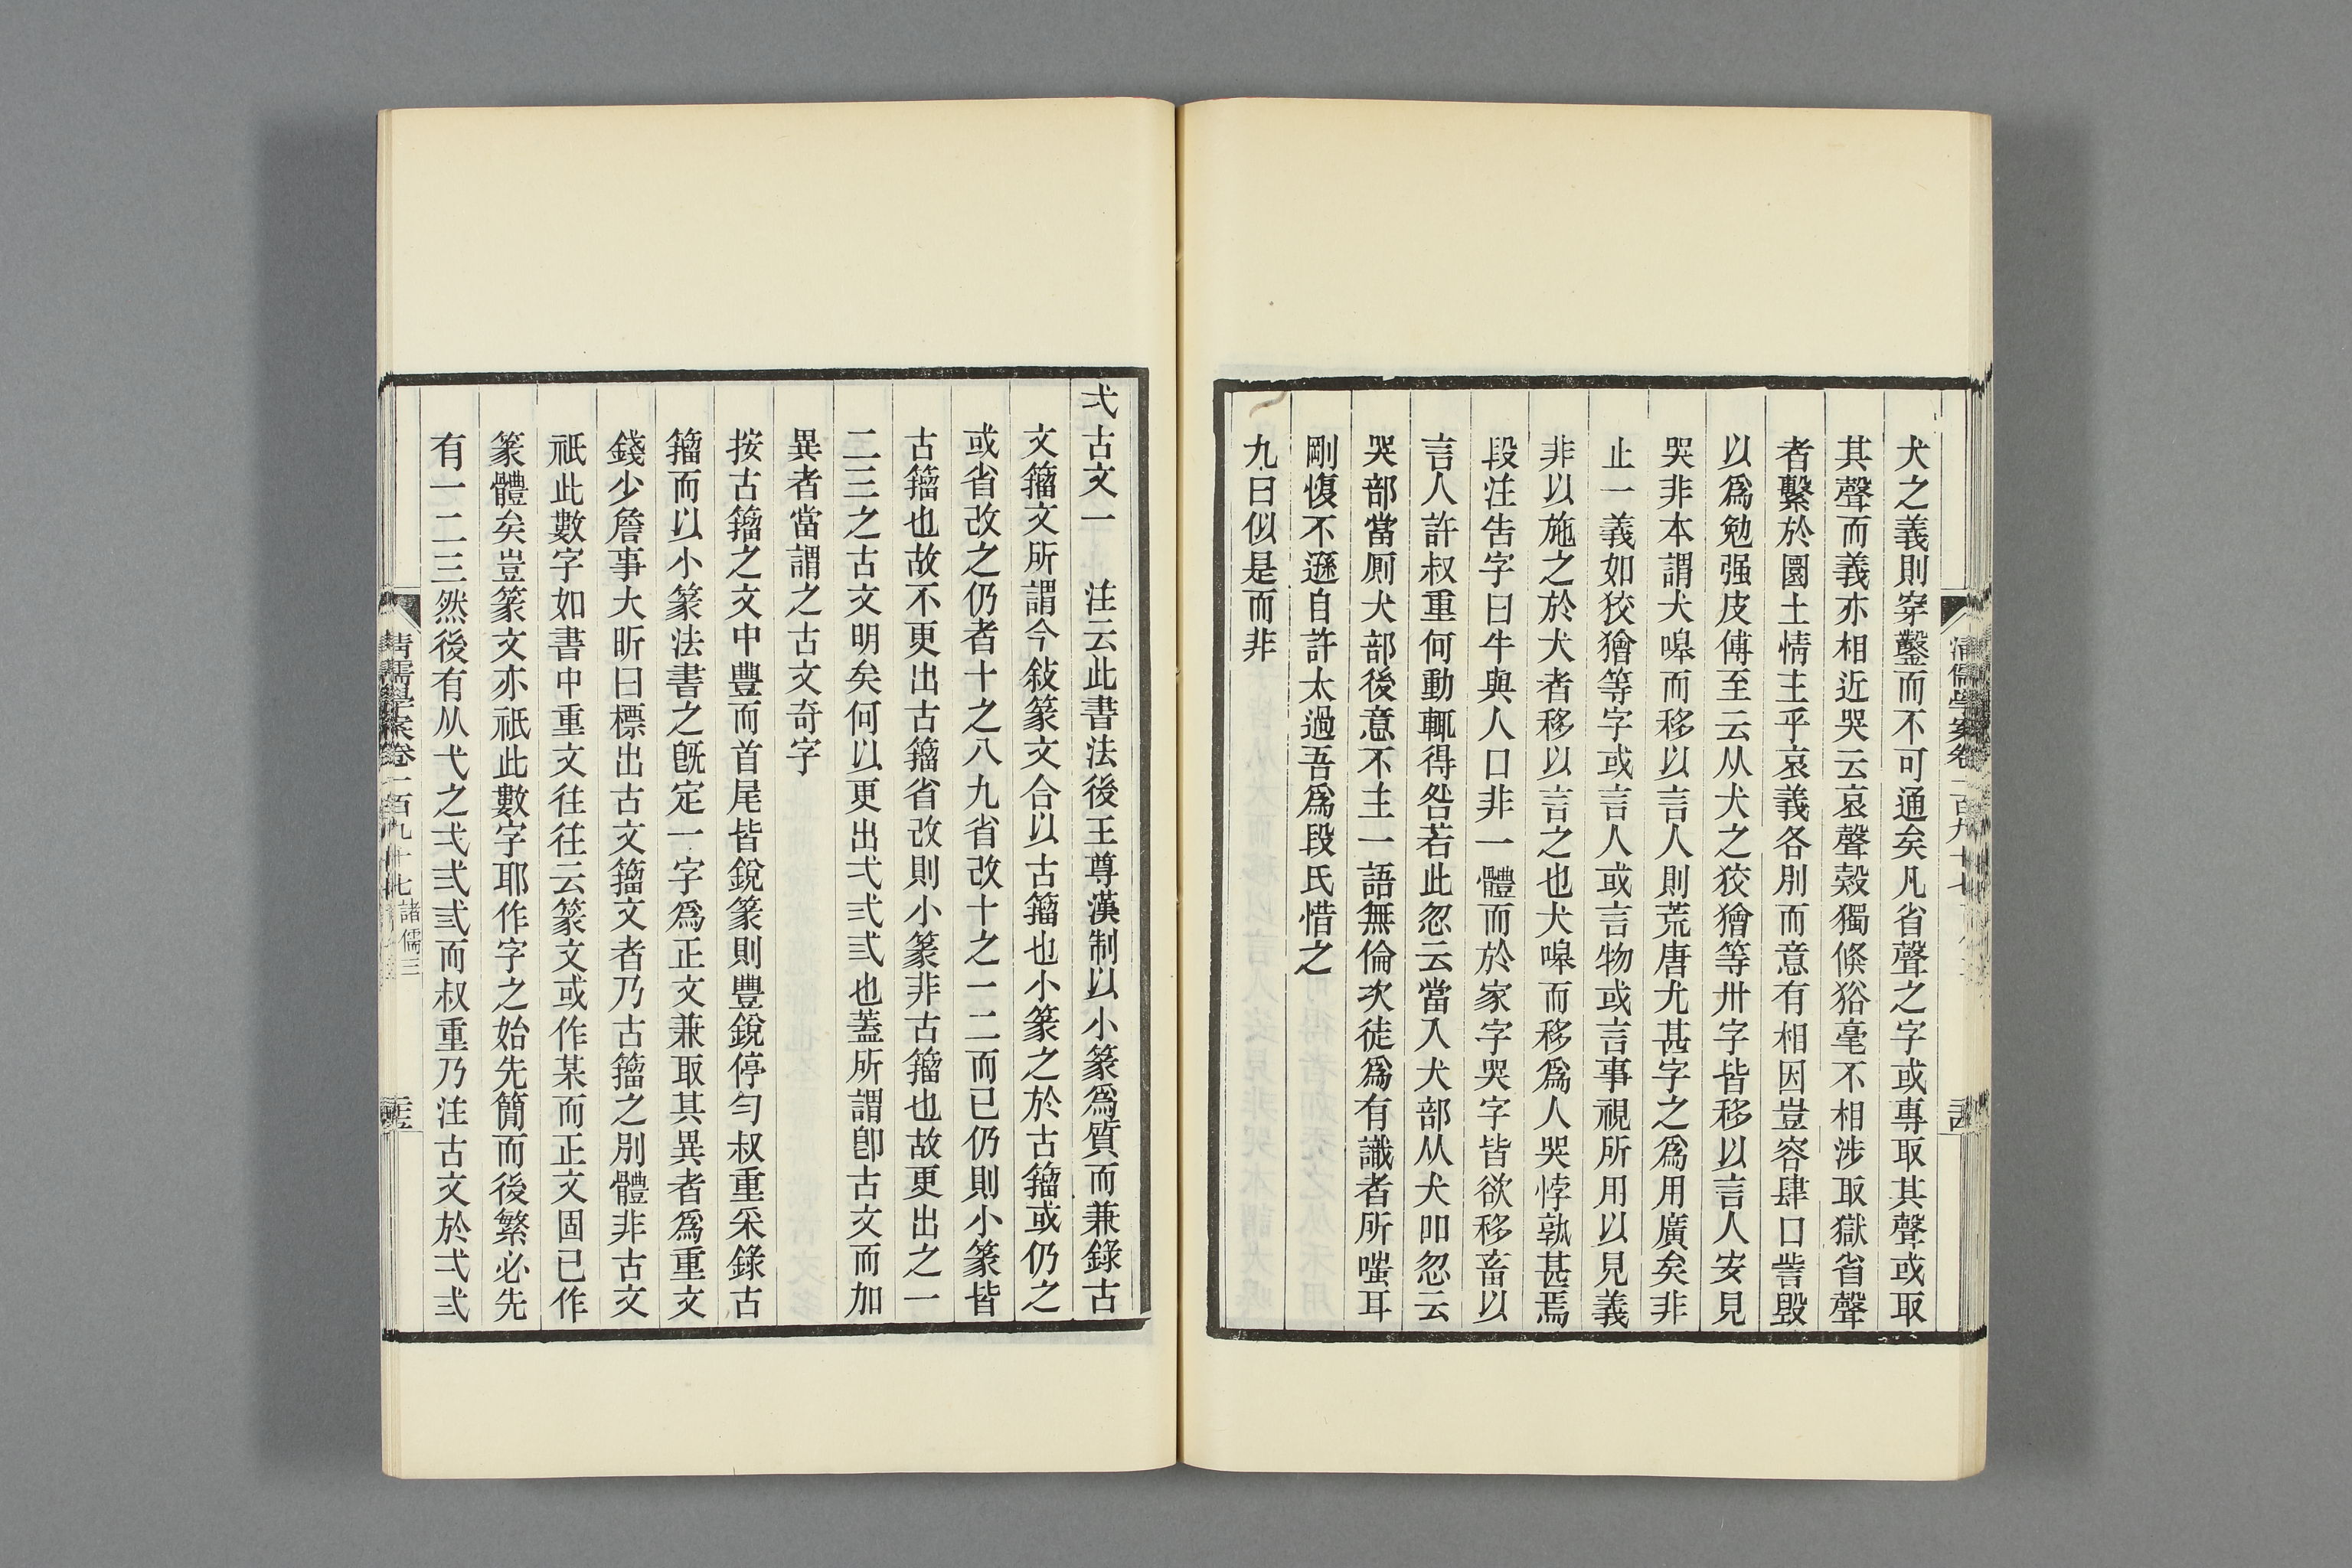 犬之義則穿鑿而不可通矣凡省聲之字或專取其聲或取
其聲而義亦相近哭云哀聲殼獨倏狢毫不相涉取獄省聲
者繫於圜土情主乎哀義各別而意有相因豈容肆口訾毀
以爲勉强皮傅至云从犬之狡獪等卅字皆移以言人安見
哭非本謂犬嗥而移以言人則荒唐尤甚字之爲用廣矣非
止一義如狡獪等字或言人或言物或言事視所用以見義
非以施之於犬者移以言之也犬嗥而移爲人哭悖孰甚焉
段注告字曰牛與人口非一體而於家字哭字皆欲移畜以
言人許叔重何動輒得咎若此忽云當入犬部从犬吅忽云
哭部當厠犬部後意不主一語無倫次徒爲有識者所嗤耳
剛愎不遜自許太過吾爲段氏惜之
九曰似是而非
弌古文一　注云此書法後王尊漢制以小篆爲質而兼錄古
文籀文所謂今敍篆文合以古籀也小篆之於古籀或仍之
或省改之仍者十之八九省改十之一二而已仍則小篆皆
古籀也故不更出古籀省改則小篆非古籀也故更出之一
二三之古文明矣何以更出弌弍弎也蓋所謂卽古文而加
異者當謂之古文奇字
按古籀之文中豐而首尾皆銳篆則豐銳停勻叔重采錄古
籀而以小篆法書之旣定一字爲正文兼取其異者爲重文
錢少詹事大昕曰標出古文籀文者乃古籀之別體非古文
祇此數字如書中重文往往云篆文或作某而正文固已作
篆體矣豈篆文亦祇此數字耶作字之始先簡而後繁必先
有一二三然後有从弋之弌弍弎而叔重乃注古文於弌弍
清儒學案卷一百九十七　諸儒三